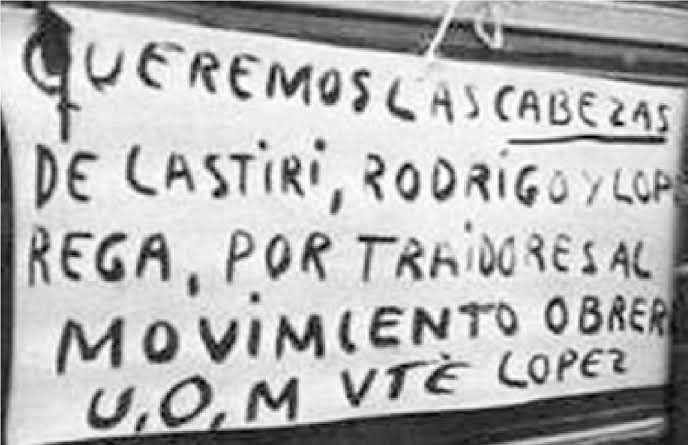 QUEREMOS LAS CABEZAS
DE LASTiRi, RODRiGO Y LOP
REGA, POR TRAiDORES AL
MOViMIENTO OBRER
U,O,M VTÈ LOPEZ